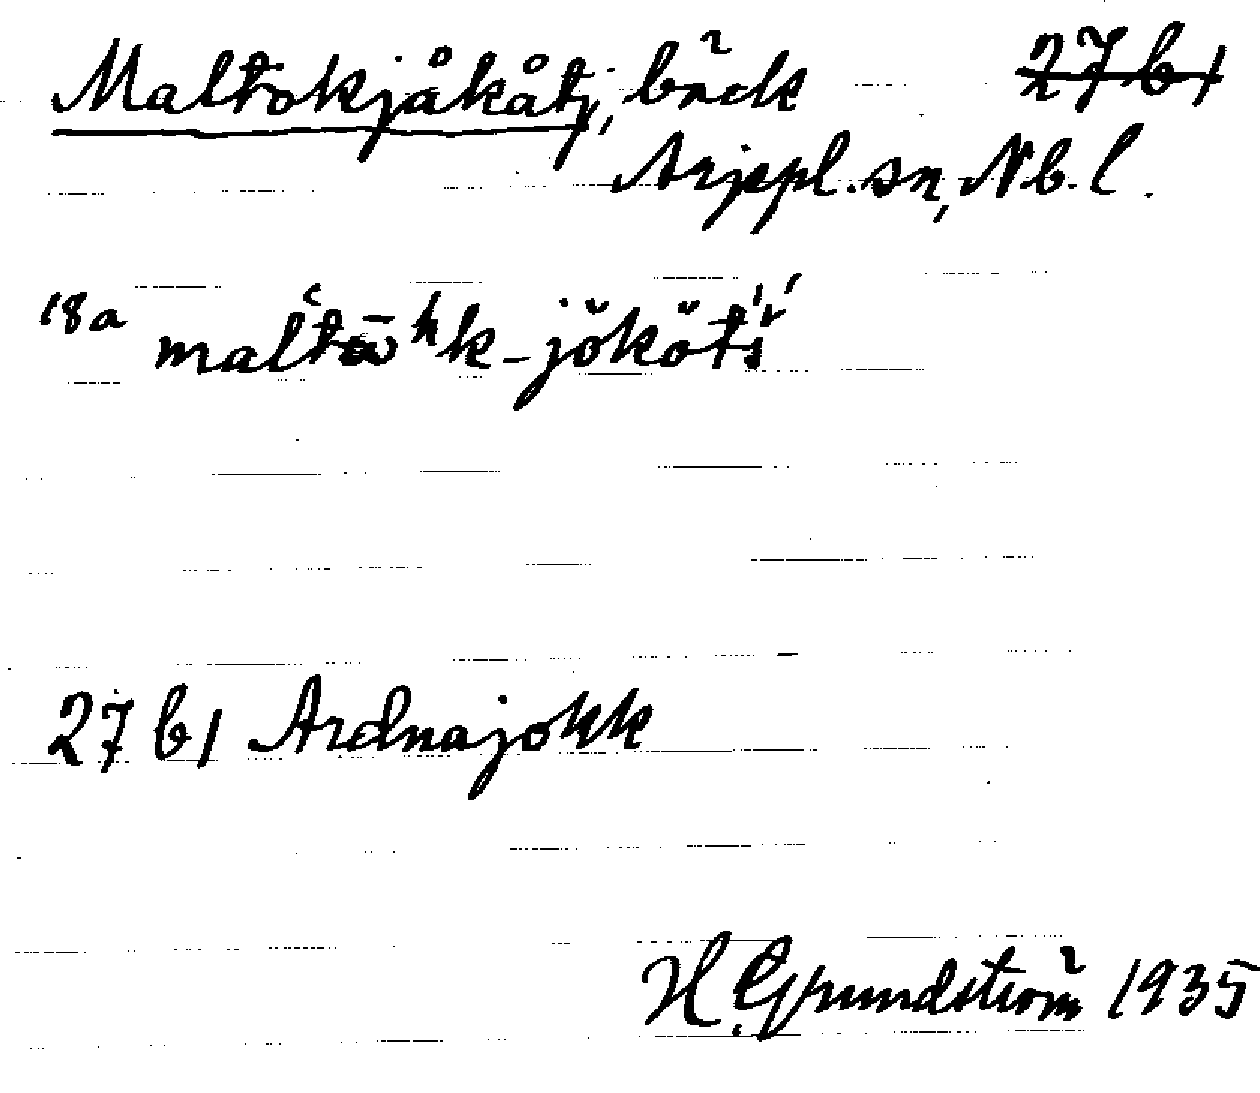 Maltokjåkåtj, bäck 27 b 1
Arjeppl. sn, Nb. l.
18a
27 b 1 Ardnajokk
H. Grundström 1935